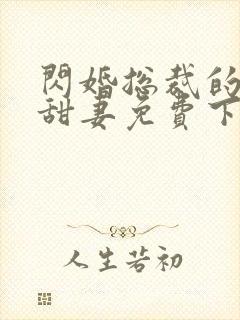 閃婚總裁的
甜妻免費下
人生若初